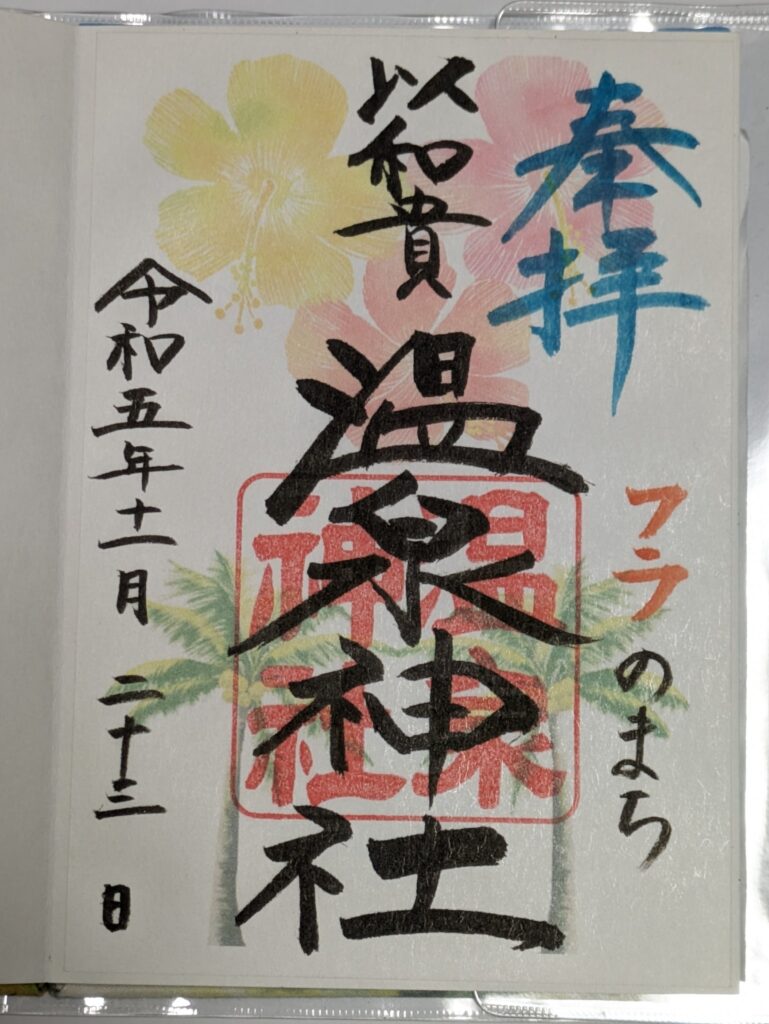 奉拝
フラのまち
以和貴
温泉神社
温泉
神社
令和五年十一月二十三日